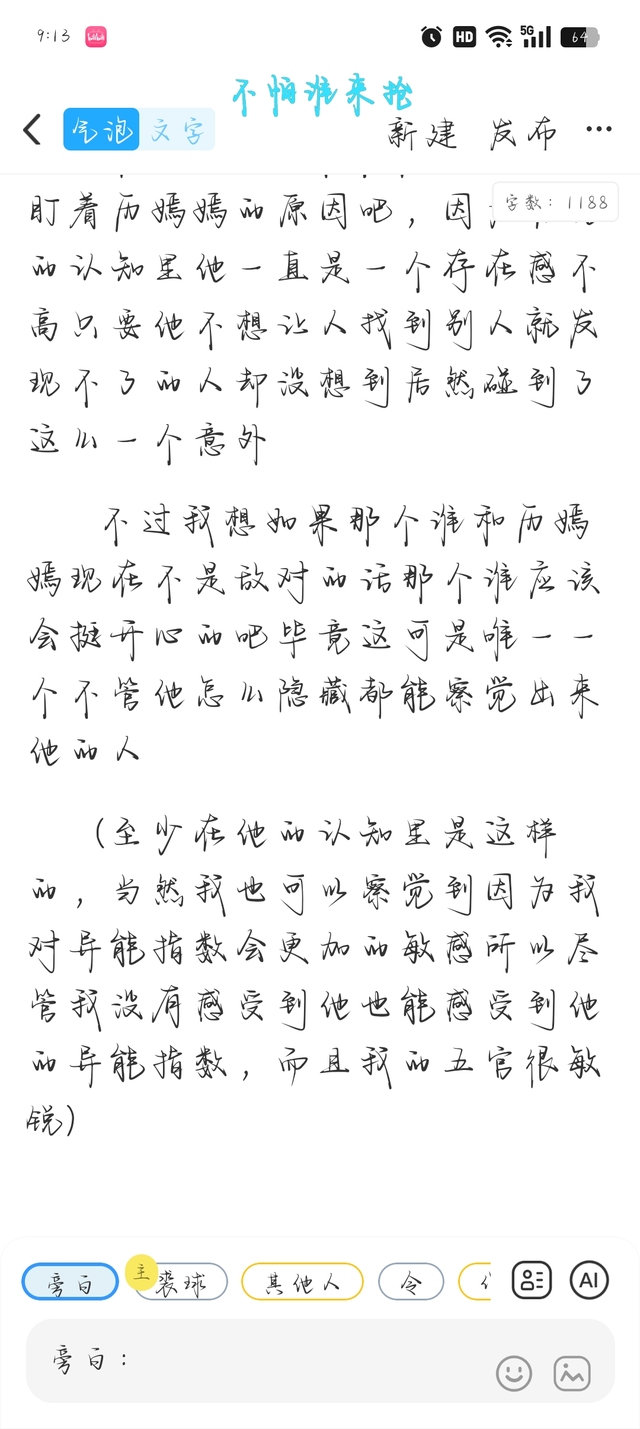 9:13
HD
5G
64
不怕谁来抢
气泡 文字
新建 发布
字数：1188
盯着历嫣嫣的原因吧，因
的认知里他一直是一个存在感不
高只要他不想让人找到别人就发
现不了的人却没想到居然碰到了
这么一个意外
不过我想如果那个谁和历嫣
嫣现在不是敌对的话那个谁应该
会挺开心的吧毕竟这可是唯一一
个不管他怎么隐藏都能察觉出来
他的人
（至少在他的认知里是这样
的，当然我也可以察觉到因为我
对异能指数会更加的敏感所以尽
管我没有感受到他也能感受到他
的异能指数，而且我的五官很敏
锐）
旁白
主
裘球
其他人
令
AI
旁白：